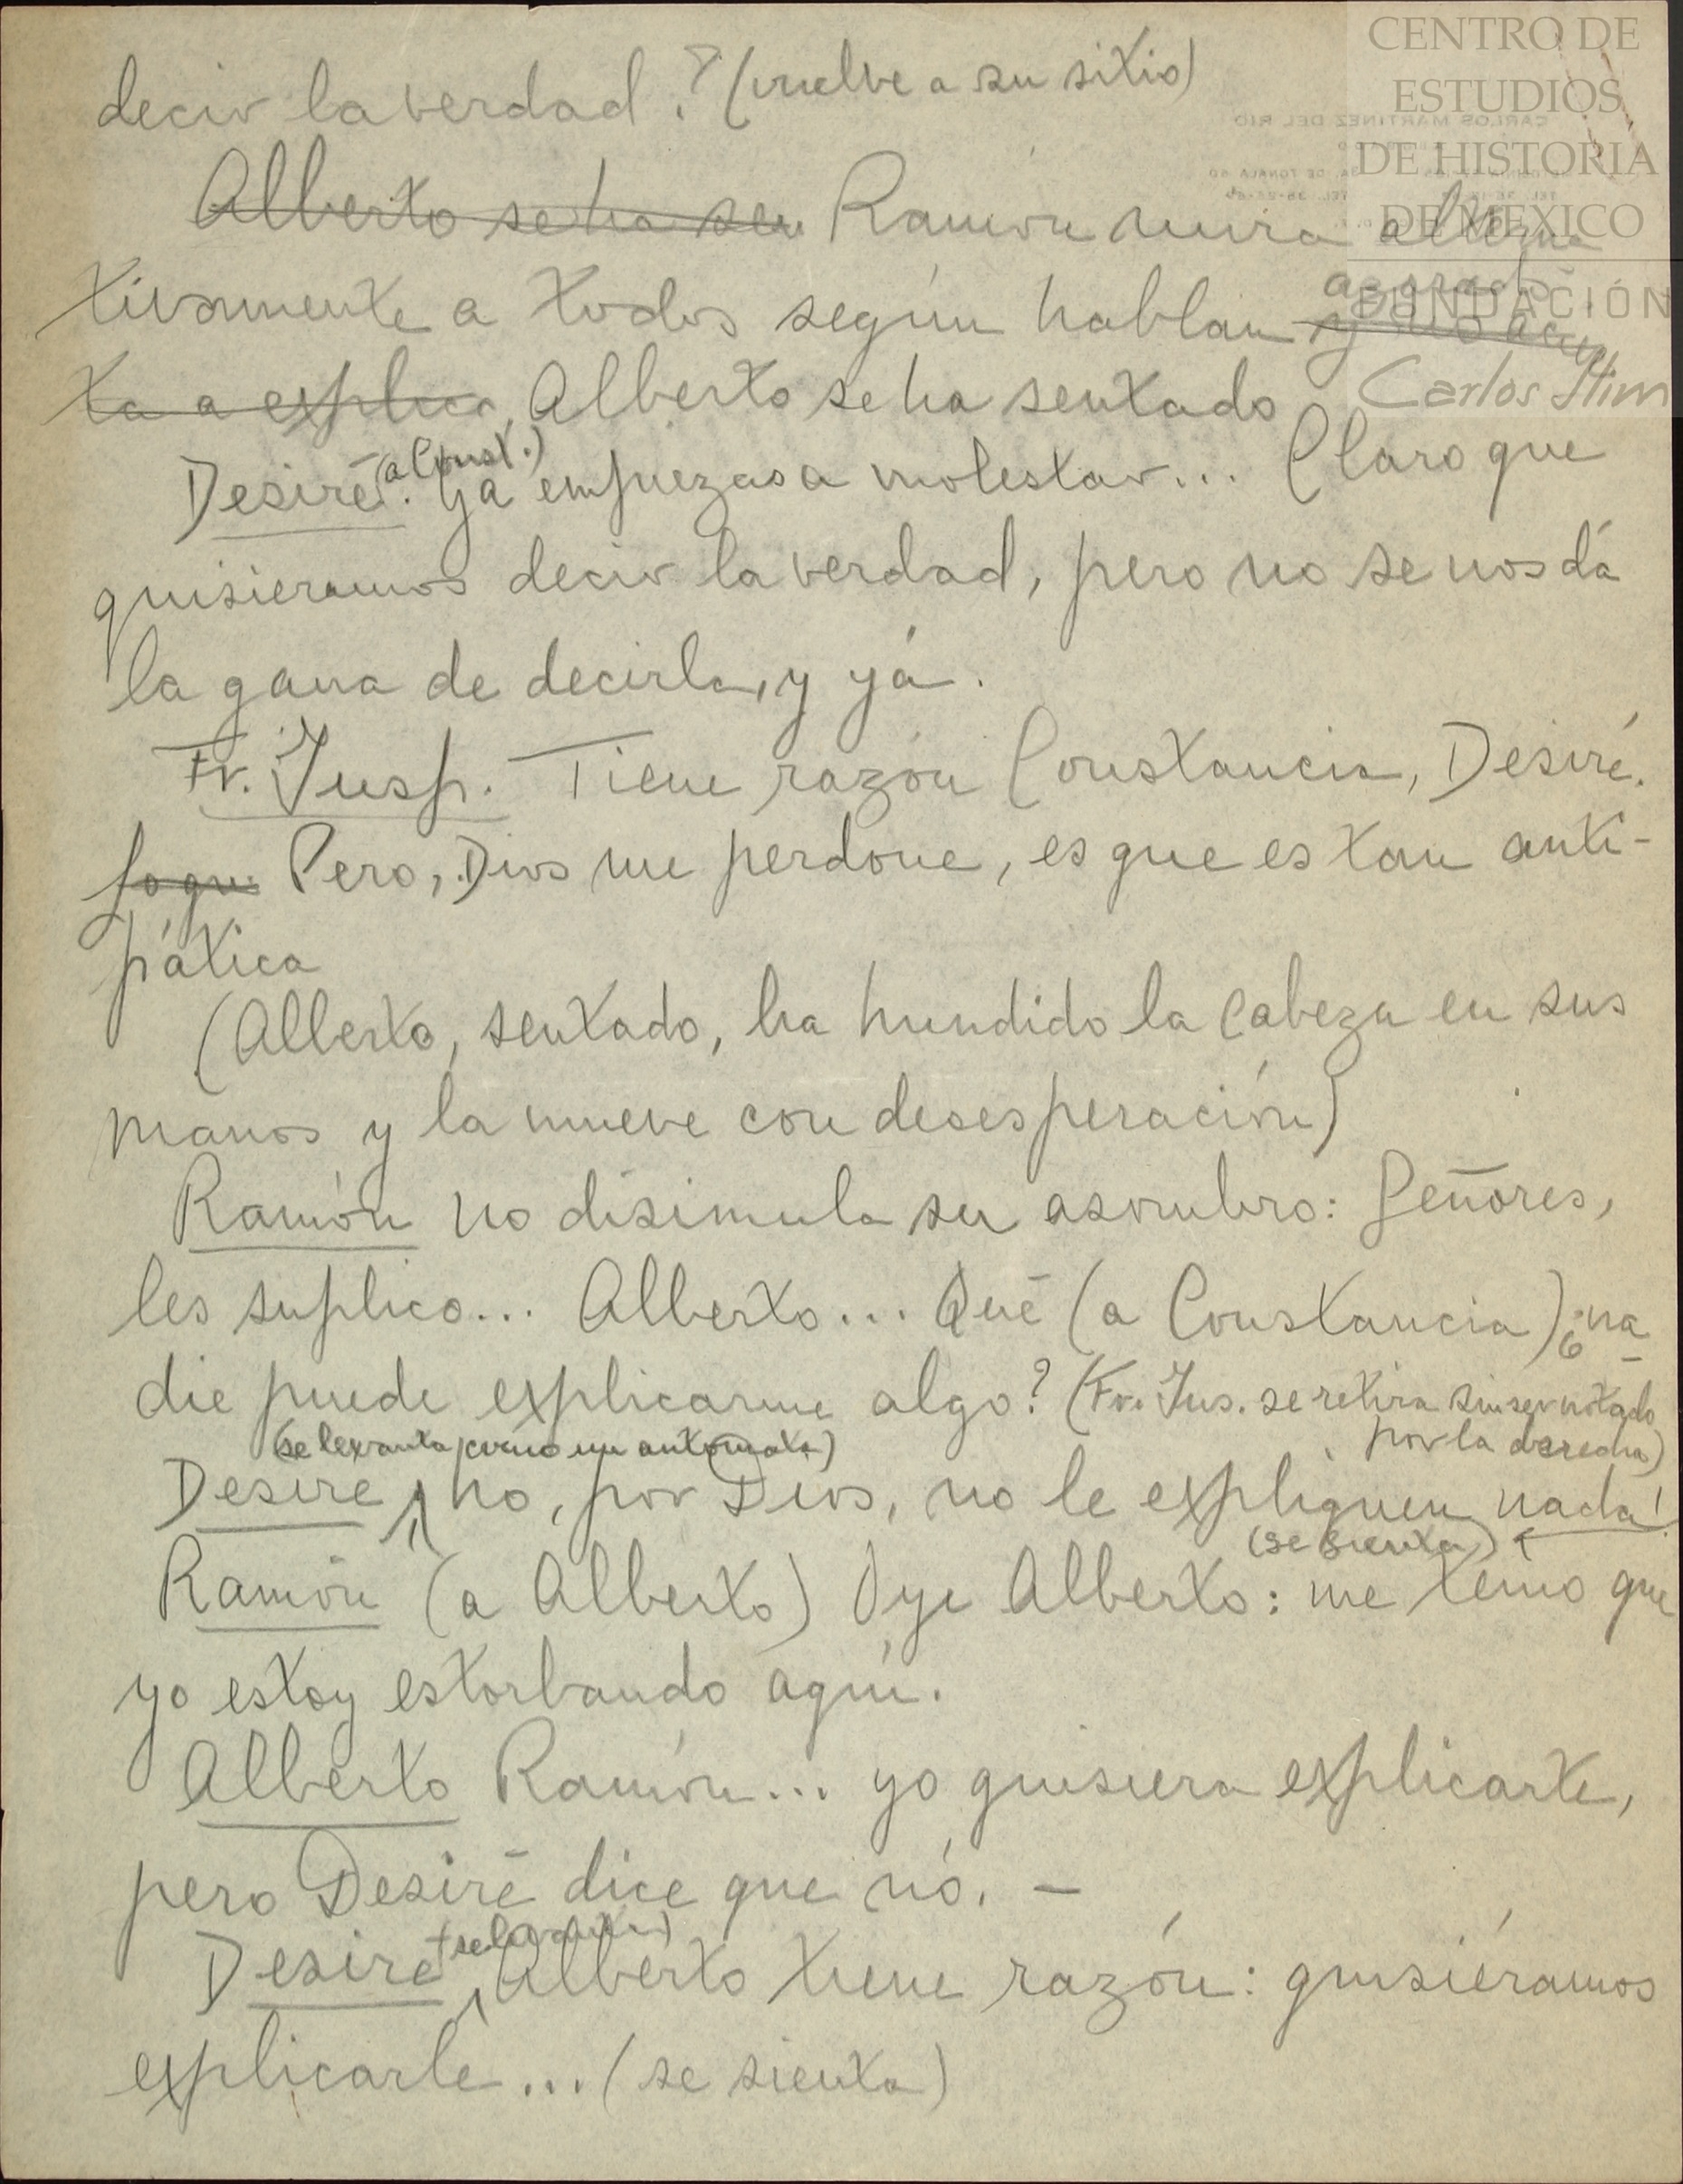 decir la verdad? (vuelve a su sitio)
Alberto se ha sen Ramón mira alterna
tivamente a todos según hablan azorado y no acier
ta a explica. Alberto se ha sentado
Desiré (a Const.). Ya empiezas a molestar... Claro que
quisieramos decir la verdad, pero no se nos dá
la gana de decirla, y yá.
Fr. Jusp. Tiene razón Constancia, Desiré.
Lo que Pero, Dios me perdone, es que es tan anti-
pática
(Alberto, sentado, ha hundido la cabeza en sus
manos y la mueve con desesperación)
Ramón no disimula su asombro: Señores,
les suplico... Alberto... Qué (a Constancia) ¿na
die puede explicarme algo? (Fr. Jus. se retira sin ser notado
por la derecha)
(se levanta como un autómata)
Desiré ¡¡no, por Dios, no le expliquen nada!
(se sienta)
Ramón (a Alberto) Oye Alberto: me temo que
yo estoy estorbando aquí.
Alberto Ramón... yo quisiera explicarte,
pero Desiré dice que nó. —
Desiré (se levanta) Alberto tiene razón: quisiéramos
explicarle... (se sienta)
CENTRO DE
ESTUDIOS
DE HISTORIA
DE MEXICO
FUNDACIÓN
Carlos Slim
CARLOS MARTINEZ DEL RIO